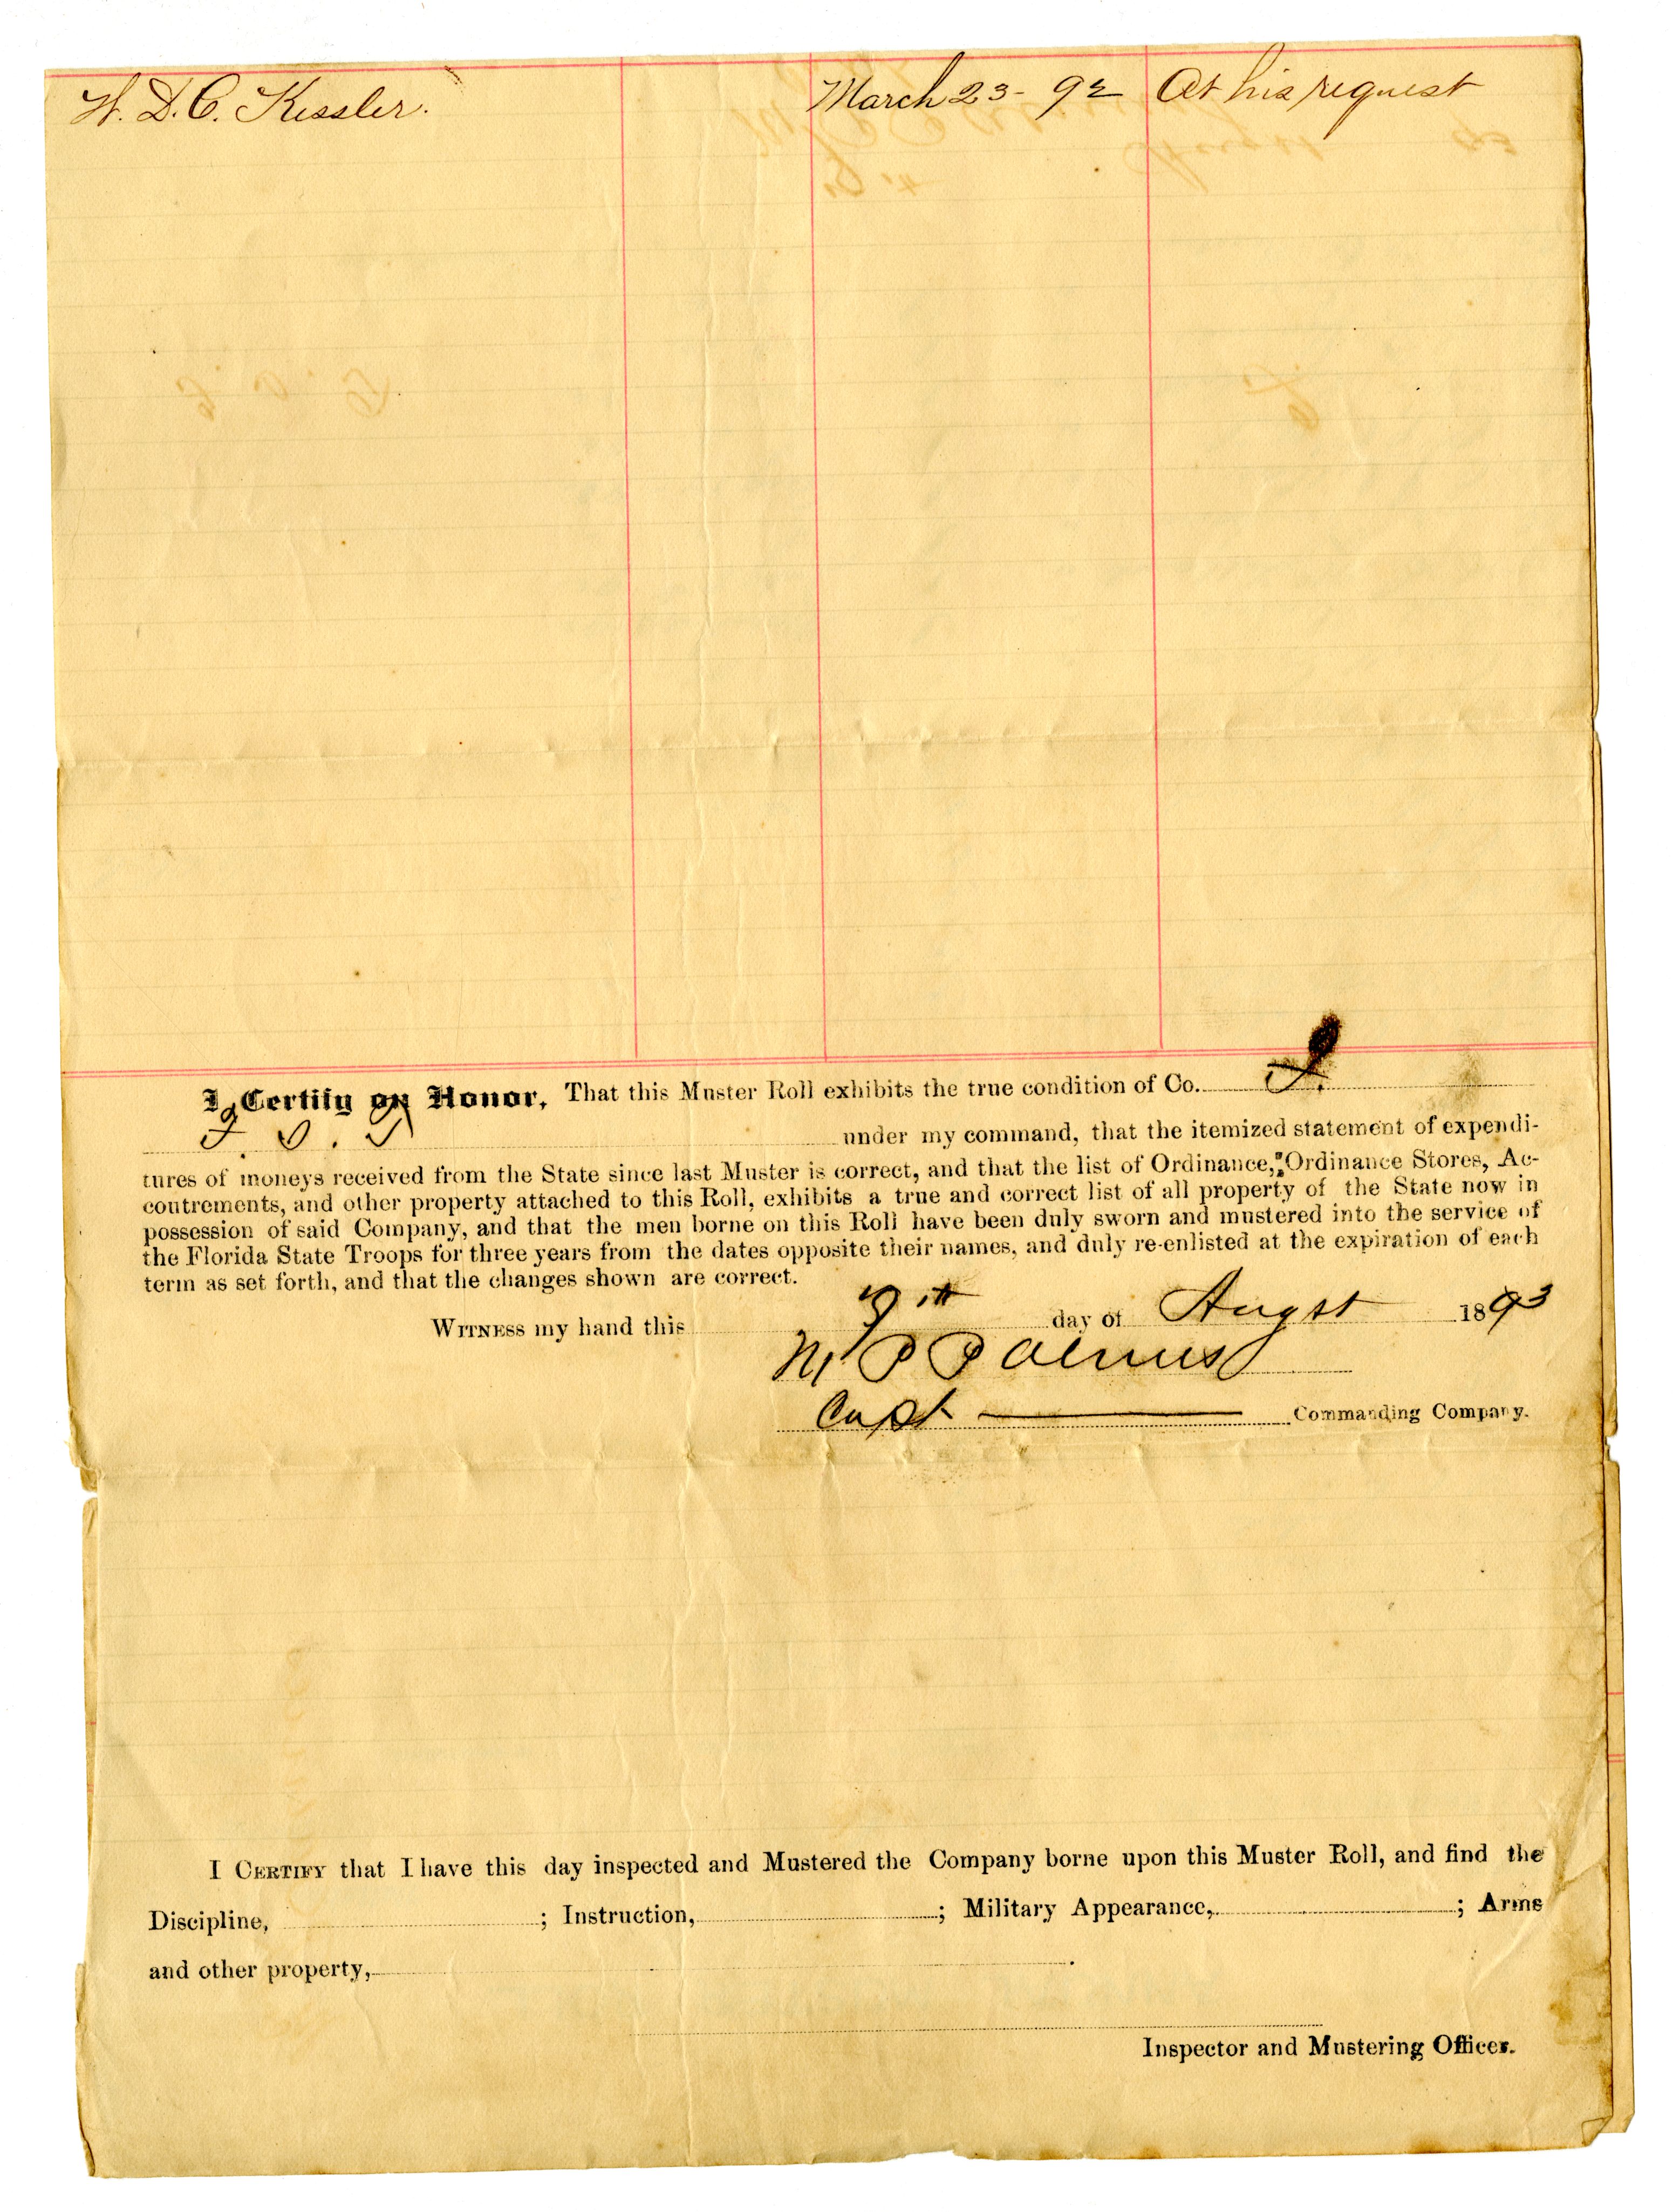 W. D. C. Kessler. March 23 - 92 At his request
I Certify on Honor, That this Muster Roll exhibits the true condition of Co. I.
F. S. T under my command, that the itemized statement of expendi-
tures of moneys received from the State since last Muster is correct, and that the list of Ordinance, Ordinance Stores, Ac-
coutrements, and other property attached to this Roll, exhibits a true and correct list of all property of the State now in
possession of said Company, and that the men borne on this Roll have been duly sworn and mustered into the service of
the Florida State Troops for three years from the dates opposite their names, and duly re-enlisted at the expiration of each
term as set forth, and that the changes shown are correct.
WITNESS my hand this 9th day of Augst 1893
Capt Commanding Company.
I CERTIFY that I have this day inspected and Mustered the Company borne upon this Muster Roll, and find the
Discipline, ; Instruction, ; Military Appearance, ; Arms
and other property, .
Inspector and Mustering Officer.